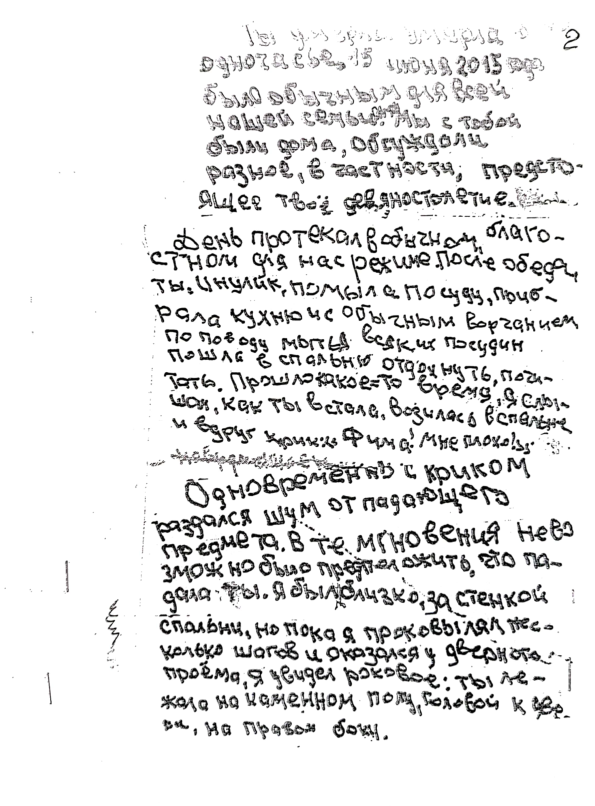 2
Ты умерла
одночасье. 15 июня 2015 года
было обычным для всей
нашей семьи. Мы с тобой
были дома, обсуждали
разное, в частности, предсто-
ящее твоё девяностолетие.
День протекал в обычном, благо-
стном для нас режиме. После обеда,
ты, Инулик, помыла посуду, приб-
рала кухню и с обычным ворчанием
по поводу мытья всяких посудин
пошла в спальню отдохнуть, почи-
тать. Прошло какое-то время, я слы-
шал, как ты встала, возилась в спальне
и вдруг крик: Фима! Мне плохо!
Одновременно с криком
раздался шум от падающего
предмета. В те мгновения нево
зможно было предположить, что па-
дала ты. Я был близко, за стенкой
спальни, но пока я проковылял нес-
колько шагов и оказался у дверного
проёма, я увидел роковое: ты ле-
жала на каменном полу, головой к две-
ри, на правом боку.